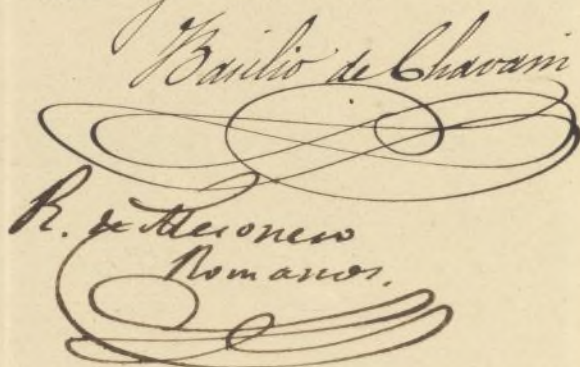 Basilio de Chavarri
R. de Mesonero
Romanos.